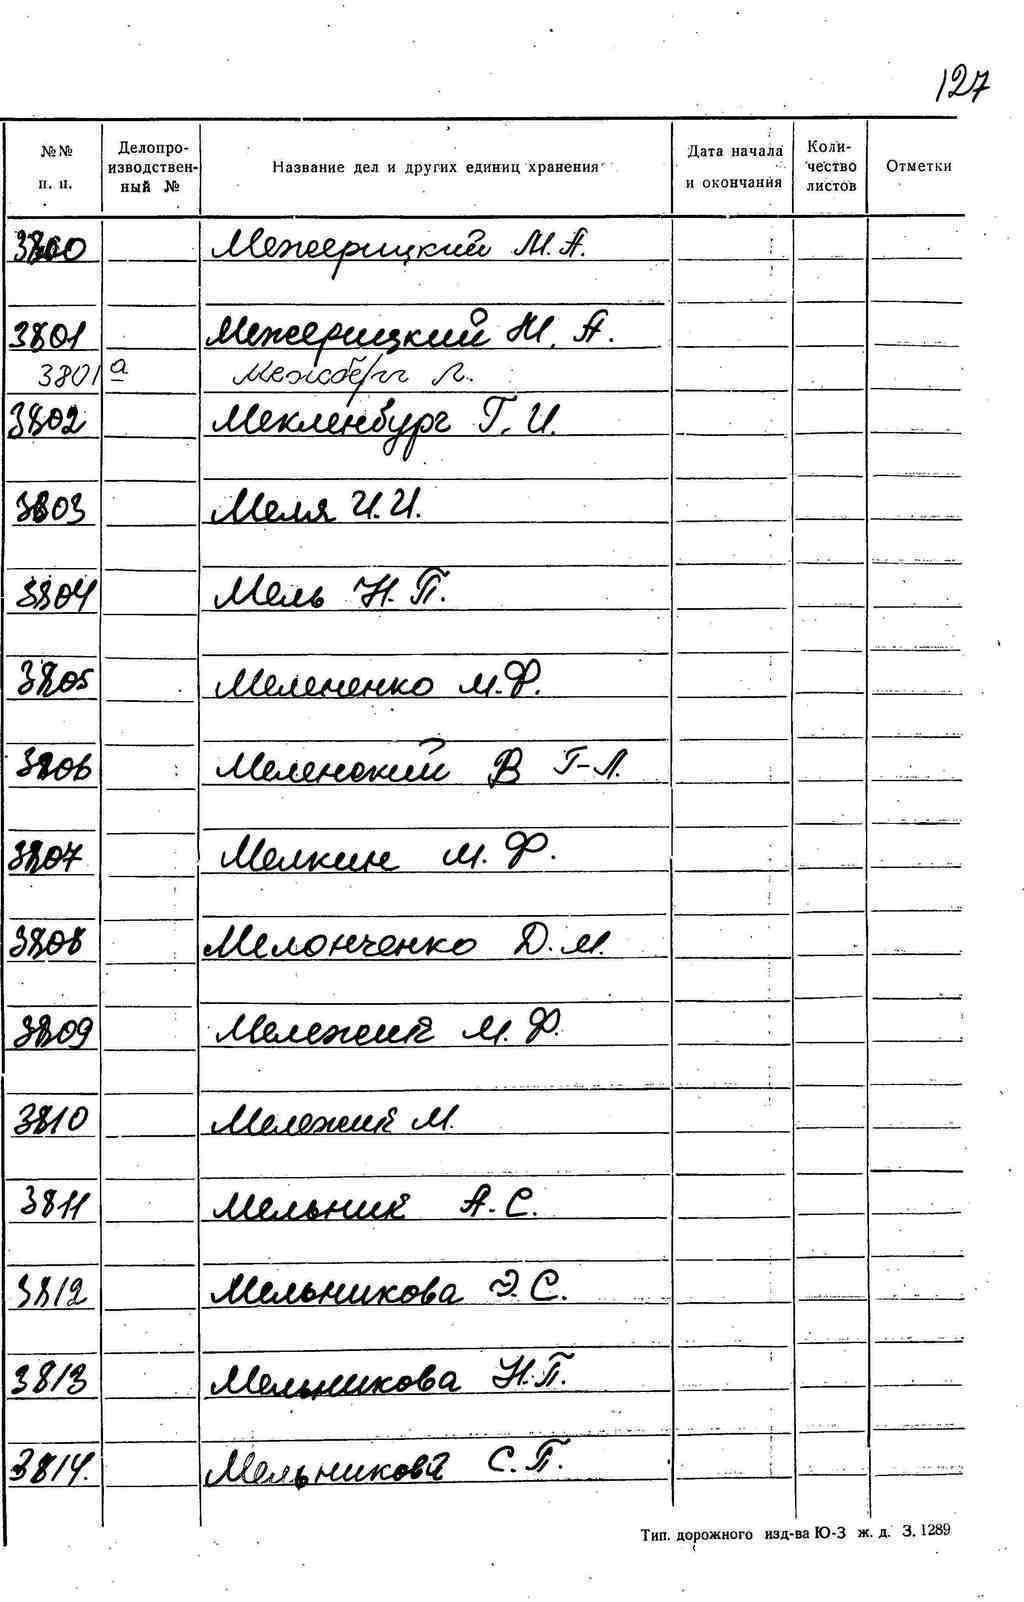 127
№№ п. п. Делопроизводственный № Название дел и других единиц хранения Дата начала и окончания Количество листов Отметки
3800 Межерицкий М. А.
3801 Межерицкий М. А.
3801 а Межберг Л.
3802 Мекленбург Г. И.
3803 Меля И. И.
3804 Мель Н. П.
3805 Мелененко М. Ф.
3806 Меленский В Г-Л.
3807 Мелкин М. Ф.
3808 Мелонченко Д. М.
3809 Мележик М. Ф.
3810 Мележик М.
3811 Мельник А. С.
3812 Мельникова Э. С.
3813 Мельникова Н. П.
3814. Мельникова С. П.
Тип. дорожного изд-ва Ю-З ж. д. З. 1289